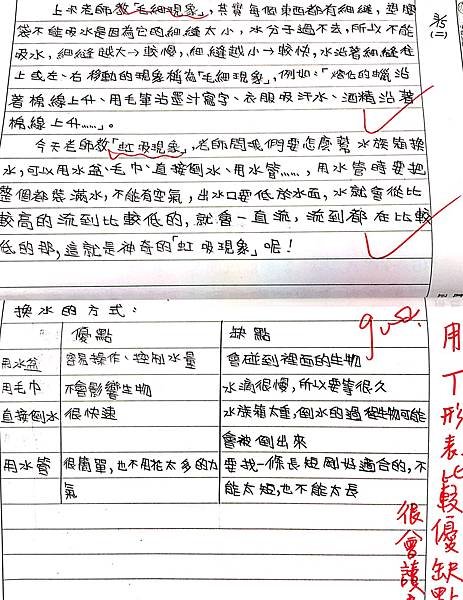 上次老師教「毛細現象」,其實每個東西都有細縫,塑膠
袋不能吸水是因為它的細縫太小,水分子過不去,所以不能
吸水,細縫越大→較慢,細縫越小→較快,水沿著細縫往
上或左、右移動的現象稱為「毛細現象」,例如:「熔化的蠟沿
著棉線上升、用毛筆沾墨汁寫字、衣服吸汗水、酒精沿著
棉線上升……」。
今天老師教「虹吸現象」,老師問我們要怎麼幫水族箱換
水,可以用水盆、毛巾、直接倒水、用水管……,用水管時要把
整個都裝滿水,不能有空氣,出水口要低於水面,水就會從比
較高的流到比較低的,就會一直流,流到都在比較
低的那,這就是神奇的「虹吸現象」呢!
換水的方式:
優點 缺點
用水盆 容易操作、控制水量 會碰到裡面的生物
用毛巾 不會影響生物 水滴很慢,所以要等很久
直接倒水 很快速 水族箱太重,倒水的過程生物可能
會被倒出來
用水管 很簡單,也不用花太多的力 要找一條長短剛好適合的,不
氣 能太短,也不能太長
good.
用T形表比較優缺點
很會讀